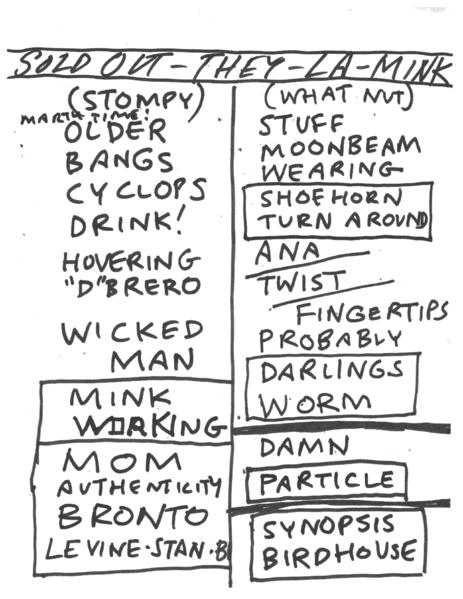 SOLD OUT - THEY - LA - MINK
(STOMPY)
MARTH TIME!
OLDER
BANGS
CYCLOPS
DRINK!
HOVERING
"D"BRERO
WICKED
MAN
MINK
WORKING
MOM
AUTHENTICITY
BRONTO
LEVINE·STAN·B
(WHAT NUT)
STUFF
MOONBEAM
WEARING
SHOEHORN
TURN AROUND
ANA
TWIST
FINGERTIPS
PROBABLY
DARLINGS
WORM
DAMN
PARTICLE
SYNOPSIS
BIRDHOUSE